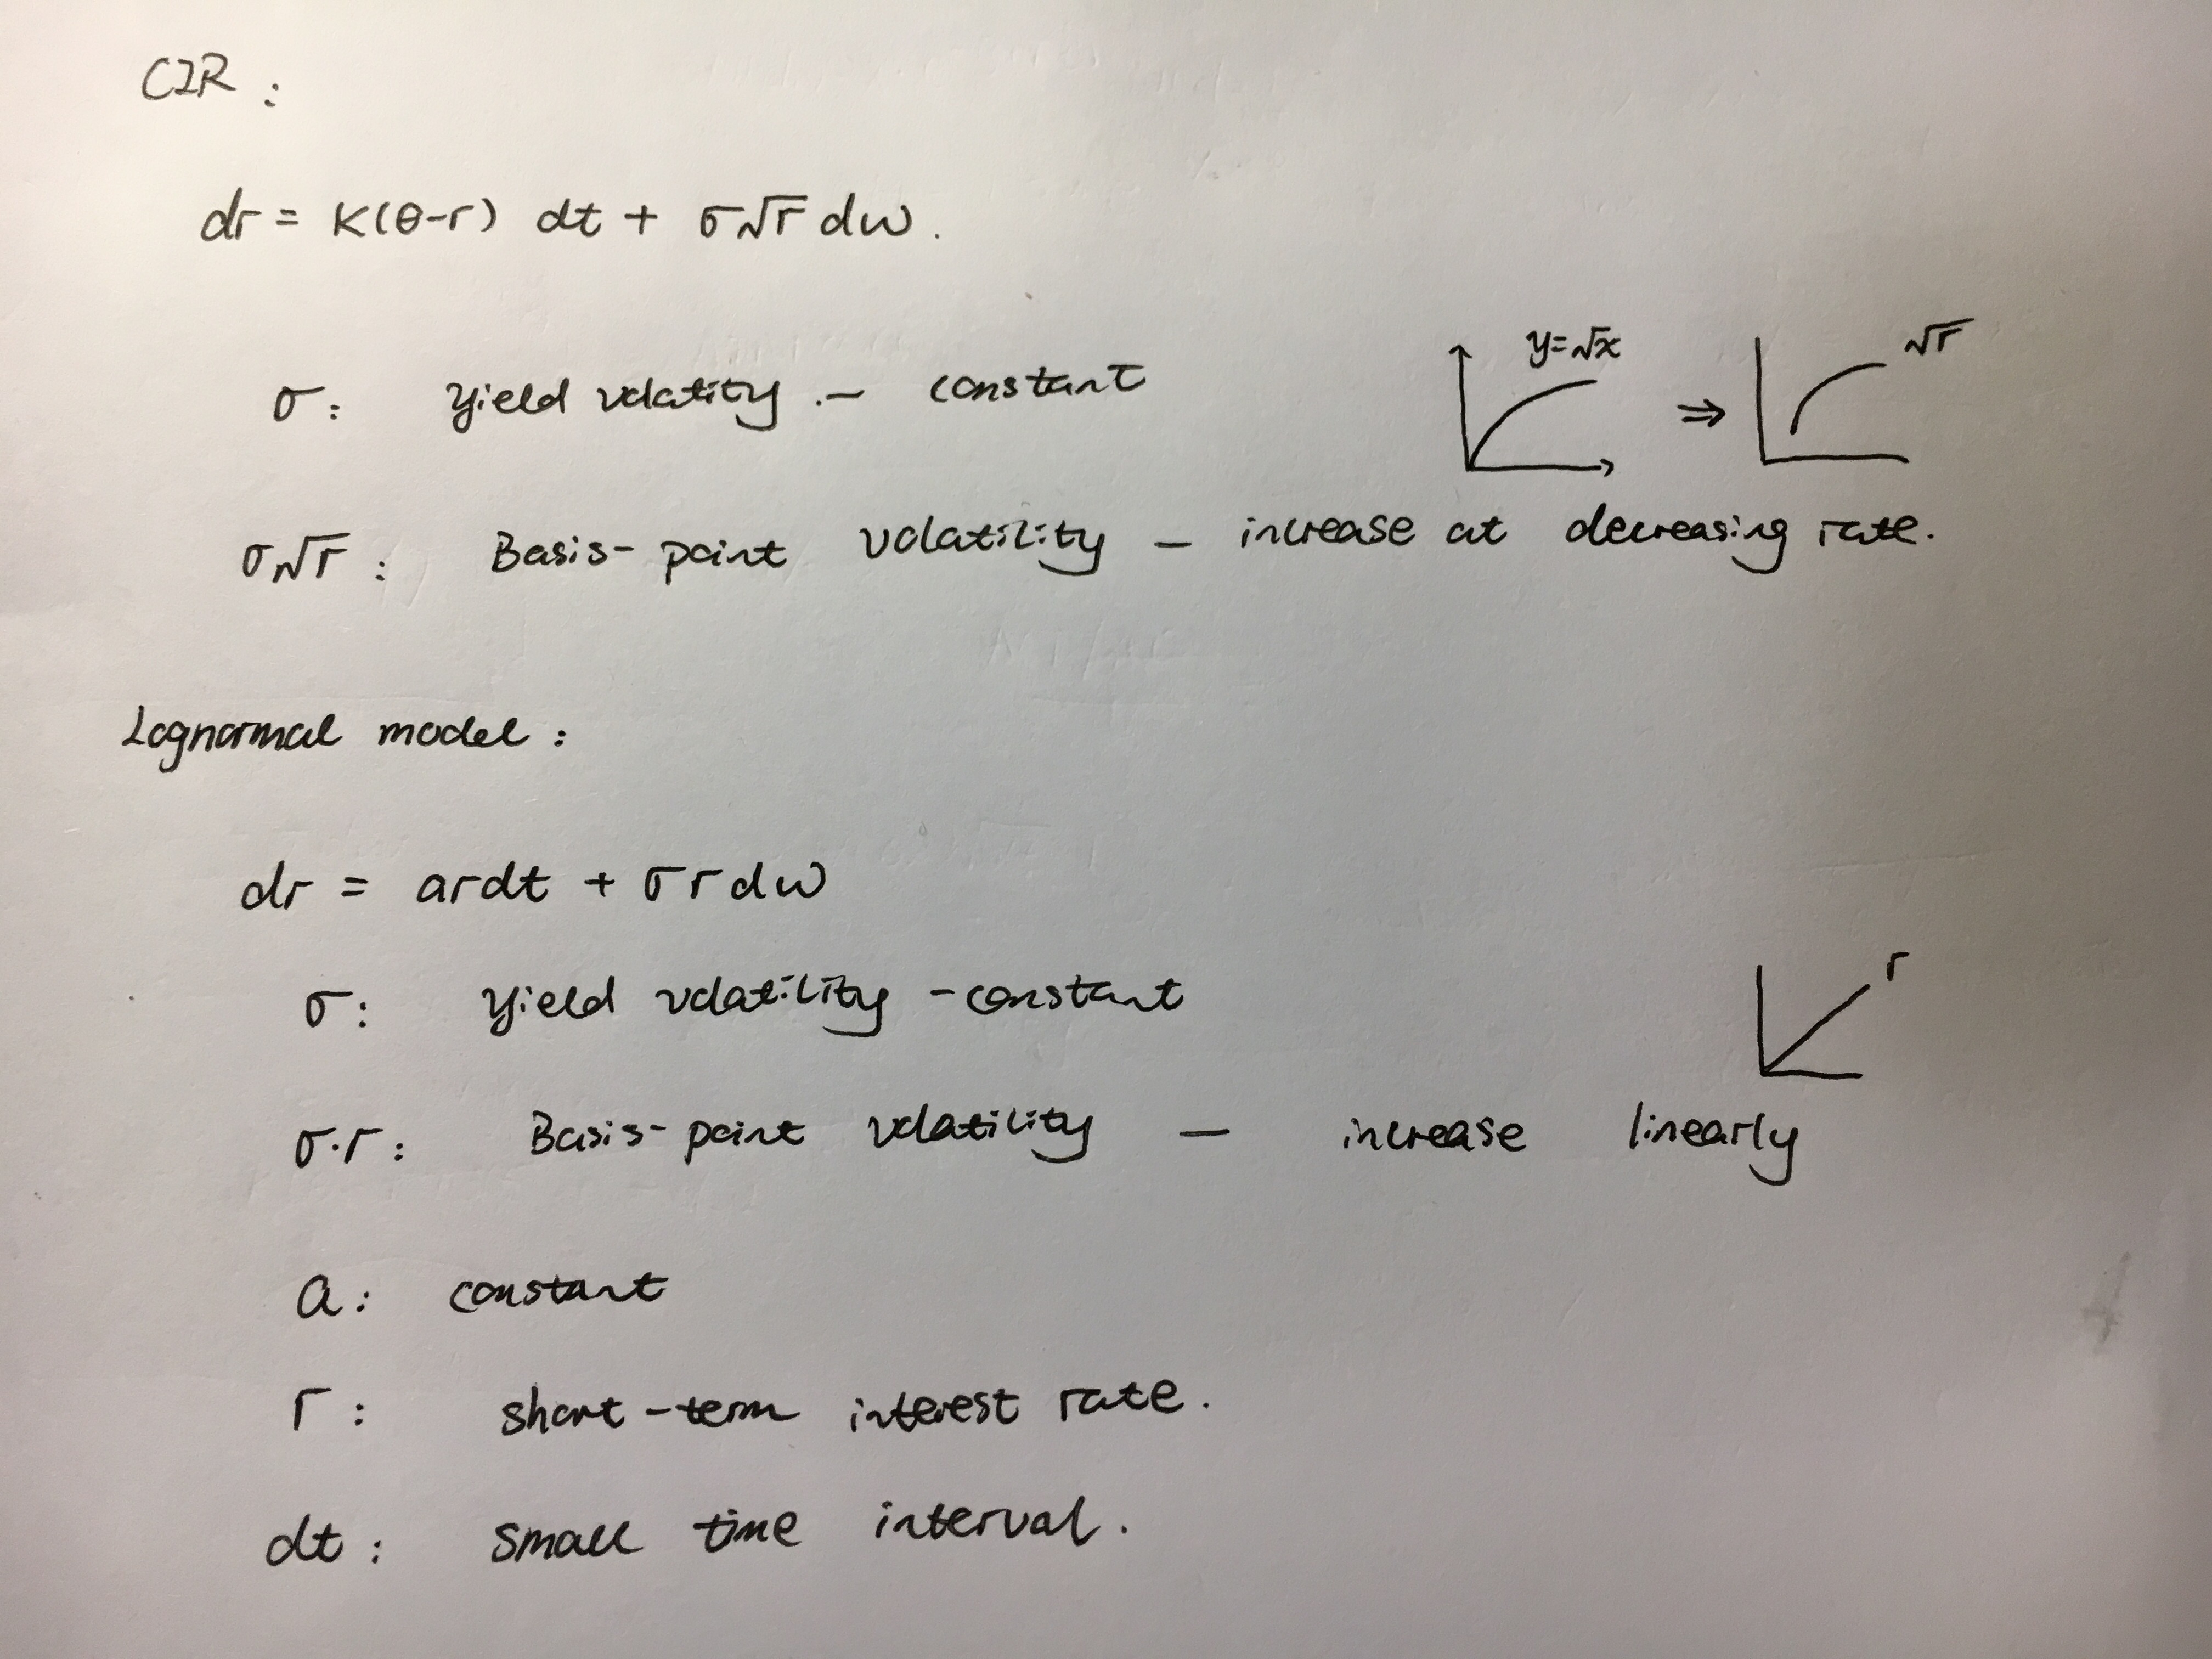 CIR :
dr = K(θ-r) dt + σ√r dw .
y=√x
√r
σ: yield volatity .— constant
⇒
σ√r : Basis-point volatility — increase at decreasing rate.
Lognormal model :
dr = ardt + σrdw
r
σ: yield volatility -constant
σ·r: Basis-point volatility — increase linearly
a: constant
r : short-term interest rate.
dt : small time interval.